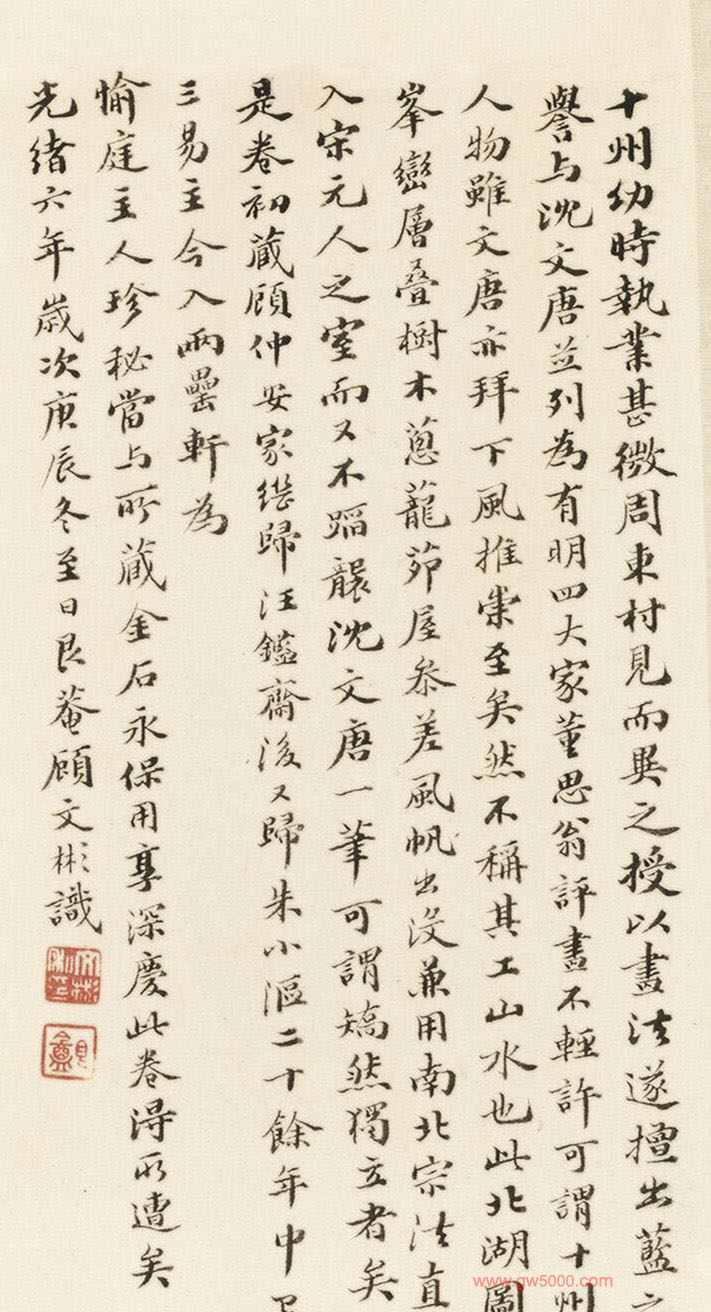 十州幼時執業甚微周東村見而異之授以畫法遂擅出藍之
譽与沈文唐並列為有明四大家董思翁評畫不輕許可謂十州
人物雖文唐亦拜下風推崇至矣然不稱其工山水也此北湖圖
峯巒層叠樹木蔥蘢茆屋参差風帆出没兼用南北宗法直
入宋元人之室而又不蹈襲沈文唐一筆可謂矯然獨立者矣
是卷初蔵顧仲安家继歸汪鑑齋後又歸朱小漚二十餘年中已
三易主今入兩罍軒為
愉庭主人珍秘當与所蔵金石永保用享深慶此卷得所遭矣
光緒六年歲次庚辰冬至日艮菴顧文彬識
www.gw5000.com